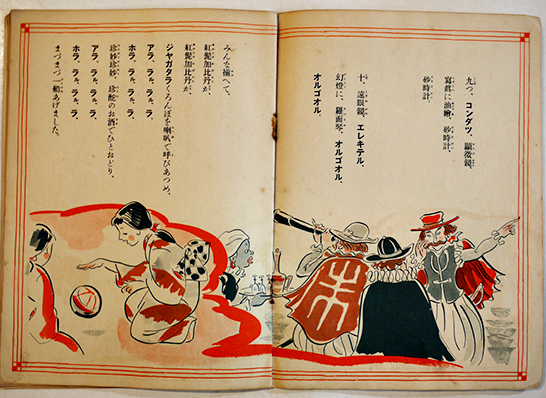 九つ、コンタツ、顯微鏡、
寫眞に油繪、砂時計、
砂時計。
十、遠眼鏡、エレキテル、
幻燈に、羅面琴、オルゴオル、
オルゴオル。
みんな揃へて、
紅髭加比丹が、
紅髭加比丹が、
ジャガタラくろんぼを喇叭で呼びあつめ、
アラ、ラル、ラル、ラ、
ホラ、ラル、ラル、ラ、
珍妙珍妙、珍酡のお酒でひとおどり、
アラ、ラル、ラル、ラ、
ホラ、ラル、ラル、ラ、
まづまづ一船あげました。